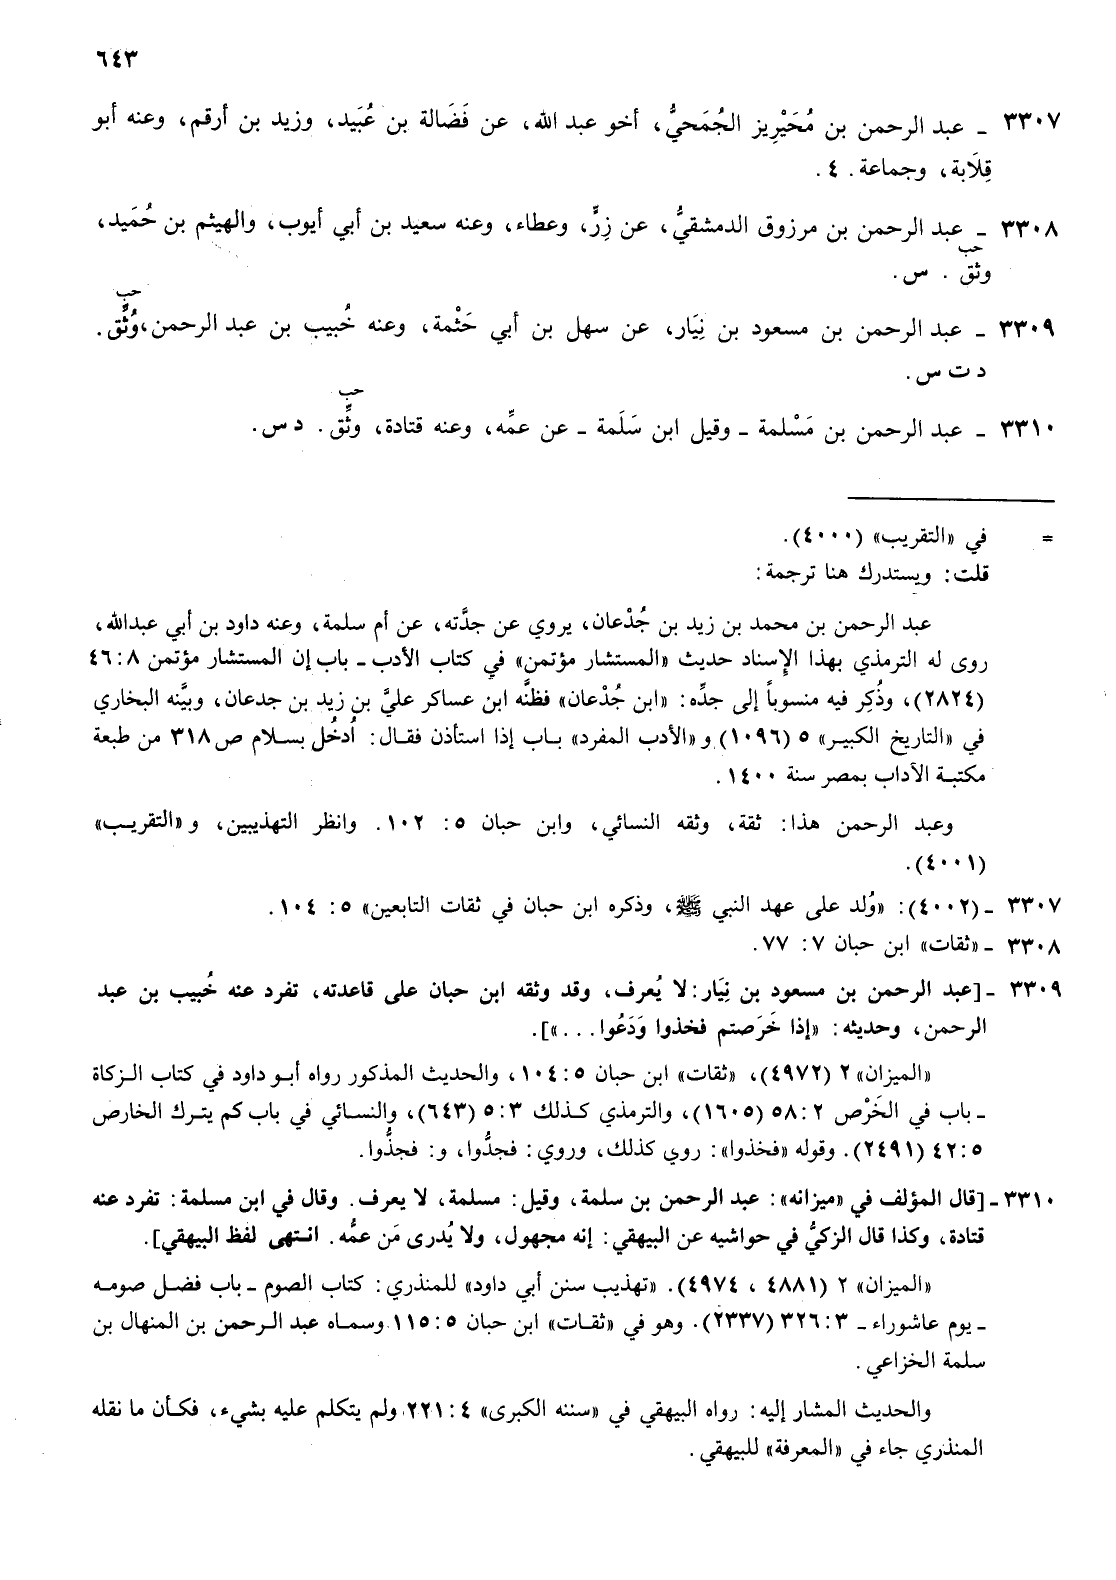 ٦٤٣
٣٣٠٧ ـ عبد الرحمن بن مُحَيْرِيز الجُمَحيُّ، أخو عبد الله، عن فَضَالة بن عُبَيد، وزيد بن أرقم، وعنه أبو
قِلَابة، وجماعة. ٤.
٣٣٠٨ ـ عبد الرحمن بن مرزوق الدمشقيُّ، عن زِرٍّ، وعطاء، وعنه سعيد بن أبي أيوب، والهيثم بن حُمَيد،
حب
وثق . س.
حب
٣٣٠٩ ـ عبد الرحمن بن مسعود بن نِيَار، عن سهل بن أبي حَثْمة، وعنه خُبيب بن عبد الرحمن، وُثِّق.
د ت س.
حب
٣٣١٠ ـ عبد الرحمن بن مَسْلمة ـ وقيل ابن سَلَمة ـ عن عمِّه، وعنه قتادة، وثِّق. د س.
= في «التقريب» (٤٠٠٠).
قلت: ويستدرك هنا ترجمة:
عبد الرحمن بن محمد بن زيد بن جُدْعان، يروي عن جدَّته، عن أم سلمة، وعنه داود بن أبي عبدالله،
روى له الترمذي بهذا الإسناد حديث «المستشار مؤتمن» في كتاب الأدب ـ باب إن المستشار مؤتمن ٨: ٤٦
(٢٨٢٤)، وذُكِر فيه منسوباً إلى جدِّه: «ابن جُدْعان» فظنَّه ابن عساكر عليَّ بن زيد بن جدعان، وبيَّنه البخاري
في «التاريخ الكبير» ٥ (١٠٩٦) و«الأدب المفرد» باب إذا استأذن فقال: أدخُل بسلام ص٣١٨ من طبعة
مكتبة الآداب بمصر سنة ١٤٠٠.
وعبد الرحمن هذا: ثقة، وثقه النسائي، وابن حبان ٥: ١٠٢. وانظر التهذيبين، و«التقريب»
(٤٠٠١).
٣٣٠٧ ـ (٤٠٠٢): «وُلد على عهد النبي ﷺ، وذكره ابن حبان في ثقات التابعين» ٥: ١٠٤.
٣٣٠٨ ـ «ثقات» ابن حبان ٧: ٧٧.
٣٣٠٩ ـ [عبد الرحمن بن مسعود بن نِيَار: لا يُعرف، وقد وثقه ابن حبان على قاعدته، تفرد عنه خُبيب بن عبد
الرحمن، وحديثه: «إذا خَرَصتم فخذوا وَدَعُوا...»].
«الميزان» ٢ (٤٩٧٢)، «ثقات» ابن حبان ٥: ١٠٤، والحديث المذكور رواه أبو داود في كتاب الزكاة
ـ باب في الخَرْص ٢: ٥٨ (١٦٠٥)، والترمذي كذلك ٣: ٥ (٦٤٣)، والنسائي في باب كم يترك الخارص
٥: ٤٢ (٢٤٩١). وقوله «فخذوا»: روي كذلك، وروي: فجدُّوا، و: فجذُّوا.
٣٣١٠ ـ [قال المؤلف في «ميزانه»: عبد الرحمن بن سلمة، وقيل: مسلمة، لا يعرف. وقال في ابن مسلمة: تفرد عنه
قتادة، وكذا قال الزكيُّ في حواشيه عن البيهقي: إنه مجهول، ولا يُدرى مَن عمُّه. انتهى لفظ البيهقي].
«الميزان» ٢ (٤٨٨١، ٤٩٧٤). «تهذيب سنن أبي داود» للمنذري: كتاب الصوم ـ باب فضل صومه
ـ يوم عاشوراء ـ ٣: ٣٢٦ (٢٣٣٧). وهو في «ثقات» ابن حبان ٥: ١١٥ وسماه عبد الرحمن بن المنهال بن
سلمة الخزاعي.
والحديث المشار إليه: رواه البيهقي في «سننه الكبرى» ٤: ٢٢١ ولم يتكلم عليه بشيء، فكأن ما نقله
المنذري جاء في «المعرفة» للبيهقي.